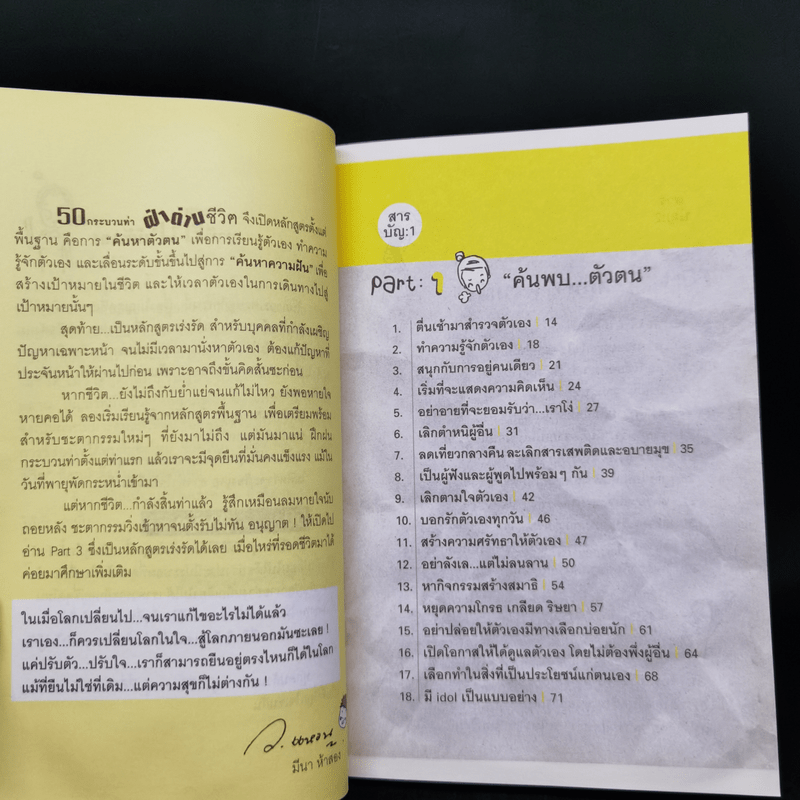 50 กระบวนท่า ฝ่าด่านชีวิต จึงเปิดหลักสูตรตั้งแต่
พื้นฐาน คือการ "ค้นหาตัวตน" เพื่อการเรียนรู้ตัวเอง ทำความ
รู้จักตัวเอง และเลื่อนระดับขั้นขึ้นไปสู่การ "ค้นหาความฝัน" เพื่อ
สร้างเป้าหมายในชีวิต และให้เวลาตัวเองในการเดินทางไปสู่
เป้าหมายนั้นๆ
สุดท้าย...เป็นหลักสูตรเร่งรัด สำหรับบุคคลที่กำลังเผชิญ
ปัญหาเฉพาะหน้า จนไม่มีเวลามานั่งหาตัวเอง ต้องแก้ปัญหาที่
ประจันหน้าให้ผ่านไปก่อน เพราะอาจถึงขั้นคิดสั้นซะก่อน
หากชีวิต...ยังไม่ถึงกับย่ำแย่จนแก้ไม่ไหว ยังพอหายใจ
หายคอได้ ลองเริ่มเรียนรู้จากหลักสูตรพื้นฐาน เพื่อเตรียมพร้อม
สำหรับชะตากรรมใหม่ๆ ที่ยังมาไม่ถึง แต่มันมาแน่ ฝึกฝน
กระบวนท่าตั้งแต่ท่าแรก แล้วเราจะมีจุดยืนที่มั่นคงแข็งแรง แม้ใน
วันที่พายุพัดกระหน่ำเข้ามา
แต่หากชีวิต...กำลังสิ้นท่าแล้ว รู้สึกเหมือนลมหายใจนับ
ถอยหลัง ชะตากรรมวิ่งเข้าหาจนตั้งรับไม่ทัน อนุญาต ! ให้เปิดไป
อ่าน Part 3 ซึ่งเป็นหลักสูตรเร่งรัดได้เลย เมื่อไหร่ที่รอดชีวิตมาได้
ค่อยมาศึกษาเพิ่มเติม
ในเมื่อโลกเปลี่ยนไป...จนเราแก้ไขอะไรไม่ได้แล้ว
เราเอง...ก็ควรเปลี่ยนโลกในใจ...สู้โลกภายนอกมันซะเลย !
แค่ปรับตัว...ปรับใจ...เราก็สามารถยืนอยู่ตรงไหนก็ได้ในโลก
แม้ที่ยืนไม่ใช่ที่เดิม...แต่ความสุขก็ไม่ต่างกัน !
มีนา ห้าสอง
สาร
บัญ:1
Part: 1 "ค้นพบ...ตัวตน"
1. ตื่นเช้ามาสำรวจตัวเอง | 14
2. ทำความรู้จักตัวเอง | 18
3. สนุกกับการอยู่คนเดียว | 21
4. เริ่มที่จะแสดงความคิดเห็น | 24
5. อย่าอายที่จะยอมรับว่า...เราโง่ | 27
6. เลิกตำหนิผู้อื่น | 31
7. ลดเที่ยวกลางคืน ละเลิกสารเสพติดและอบายมุข | 35
8. เป็นผู้ฟังและผู้พูดไปพร้อมๆ กัน | 39
9. เลิกตามใจตัวเอง | 42
10. บอกรักตัวเองทุกวัน | 46
11. สร้างความศรัทธาให้ตัวเอง | 47
12. อย่าลังเล...แต่ไม่ลนลาน | 50
13. หากิจกรรมสร้างสมาธิ | 54
14. หยุดความโกรธ เกลียด ริษยา | 57
15. อย่าปล่อยให้ตัวเองมีทางเลือกบ่อยนัก | 61
16. เปิดโอกาสให้ได้ดูแลตัวเอง โดยไม่ต้องพึ่งผู้อื่น | 64
17. เลือกทำในสิ่งที่เป็นประโยชน์แก่ตนเอง | 68
18. มี idol เป็นแบบอย่าง | 71